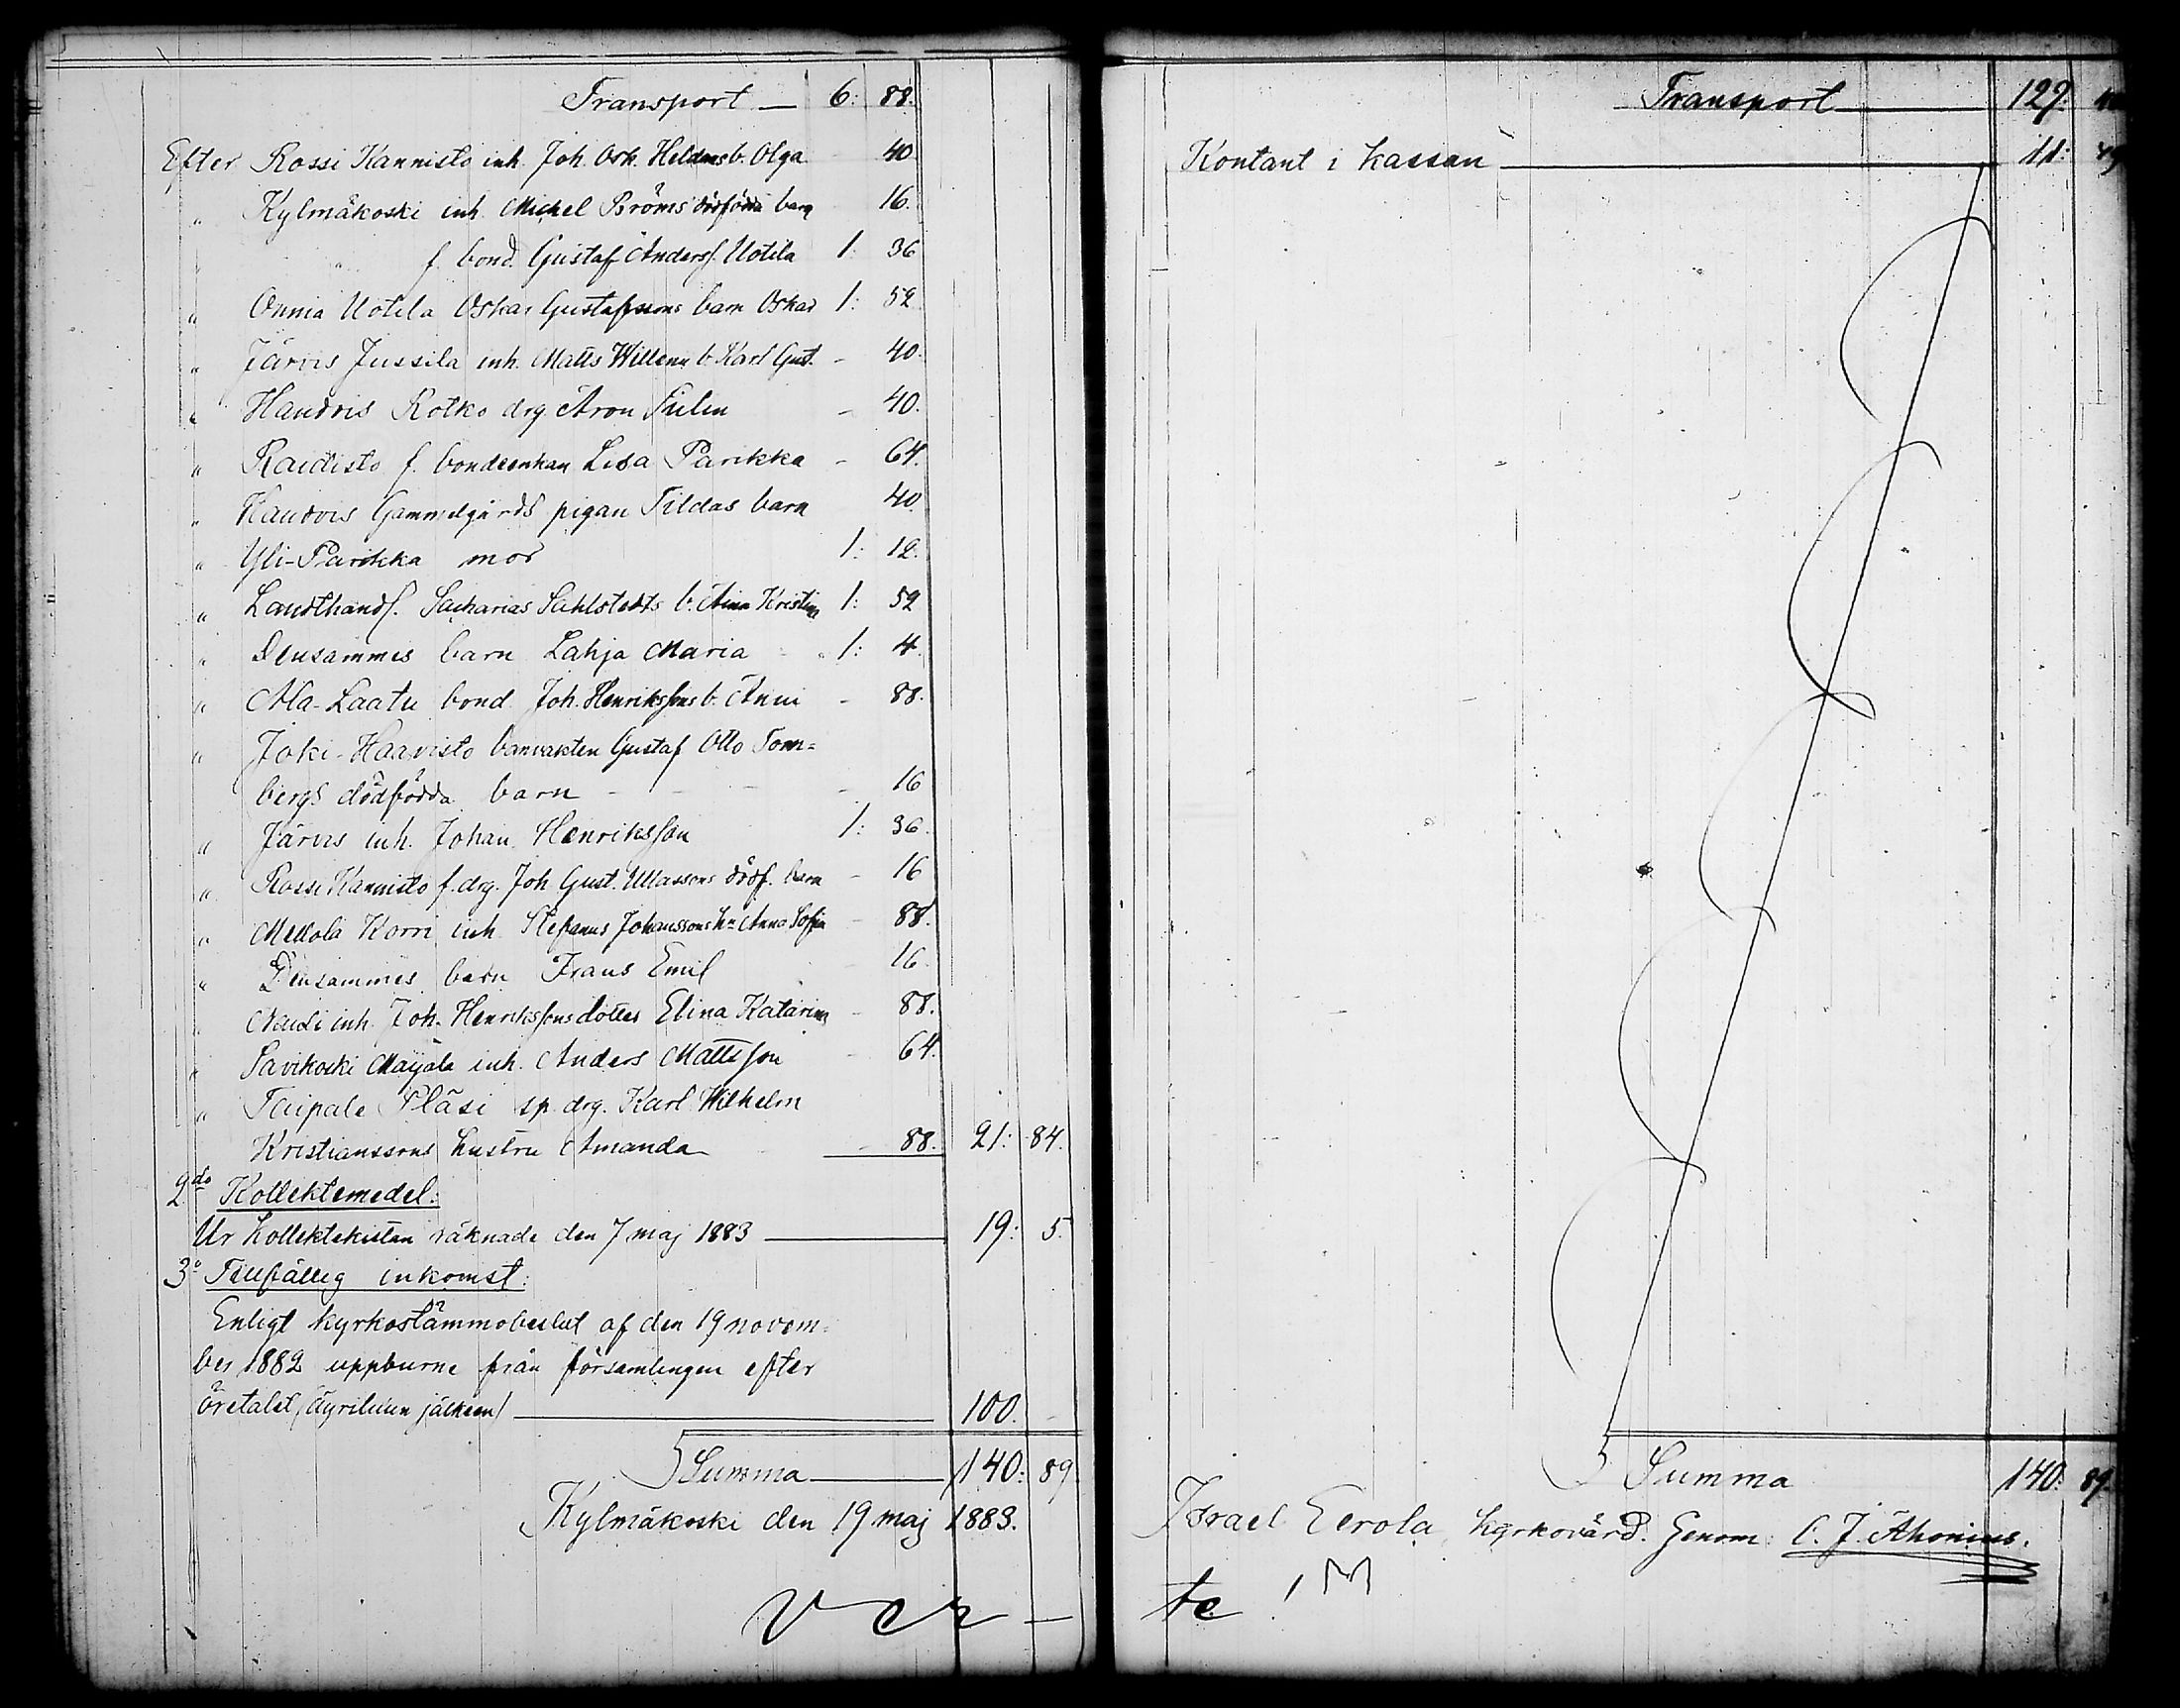 Transport — 6: 88.
Efter Rossi Kannisto inh. Joh. Osk. Heldens b. Olga 40
„ Kylmäkoski inh. Michel Bröms dödfödda barn 16.
„ „ f. bond. Gustaf Anderss. Uotila 1: 36
„ Onnia Uotila Oskar Gustafssons barn Oskar 1: 52
„ Järvis Jussila inh. Matts Willenu b. Karl Gust. - 40.
„ Haudvis Rotko drg. Aron Fulin - 40.
„ Raidisto f. bondeenkan Lisa Parikka - 64.
„ Haudvis Gammelgårds pigan Tildas barn 40
„ Yli-Parikka mor 1: 12.
„ Landthandl. Sacharias Sahlstedts b. Aina Kristina 1: 52
„ Densammes barn Lahja Maria 1: 4.
„ Ala-Laatu bond Joh. Henrikssons b. Anni - 88.
„ Joki-Haavisto banvakten Gustaf Otto Torn=
bergs dödfödda barn - 16
„ Järvis inh. Johan Henriksson 1: 36.
„ Rossi Kannisto f. drg. Joh. Gust. Ullassons dödf. barn - 16
„ Mellola Korri inh. Stefanus Johanssons h:u Anna Sofia 88.
„ Densammes barn Frans Emil 16.
„ Naudi inh. Joh. Henrikssons dotter Elina Katarina 88.
„ Savikoski Maijala inh. Anders Mattsson 64.
„ Taipale Pläsi sp. drg. Karl Wilhelm
Kristianssons hustru Amanda 88. 21: 84.
2do Kollektemedel:
Ur Kollektekistan räknade den 7 maj 1883 — 19: 5.
3o Tillfällig inkomst:
Enligt kyrkostämmobeslut af den 19 novem=
ber 1882 uppburne från församlingen efter
öretalet /äyriluun jälkeen/ — 100. -
Summa — 140: 89
Kylmäkoski den 19 maj 1883.
Transport — 129
Kontant i kassan — 11: 49
Summa 140: 89.
Israel Eerola, kyrkovärd. Genom: C. J. Ahonius.